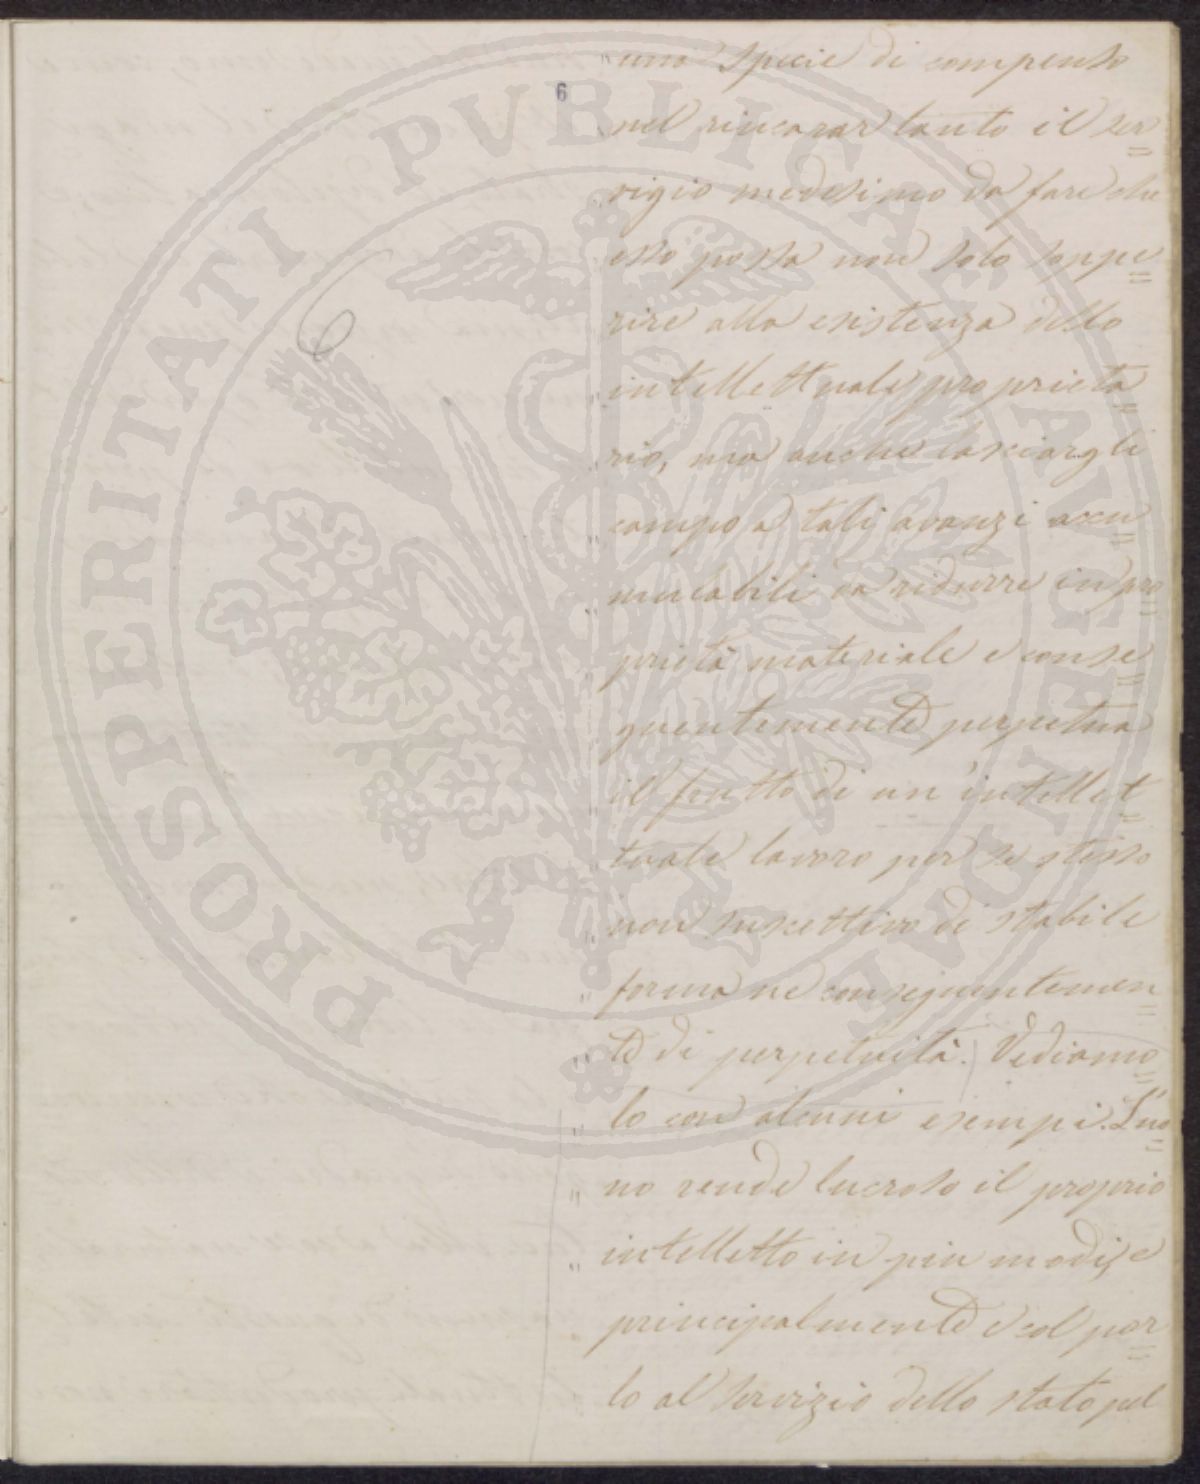 6
6
" una specie di compenso
" nel rincarar tanto il ser=
" vigio medesimo da fare che
" esso possa non solo soppe=
" rire alla esistenza dello
" intellettuale proprieta=
" rio, ma anche lasciargli
" campo a tali avanzi accu=
" mulabili da ridurre in pro=
" prietà materiale e conse=
" guentemente perpetua
" il frutto di un'intellet=
" tuale lavoro per se stesso
" non suscettivo di stabile
" forma ne conseguentemen=
" te di perpetuità. Vediamo=
" lo con alcuni esempi. L'uo=
" mo rende lucroso il proprio
" intelletto in piu modi, e
" principalmente e col por=
lo al servizio dello stato pel
PROSPERITATI PVBLICAE AVGENDAE